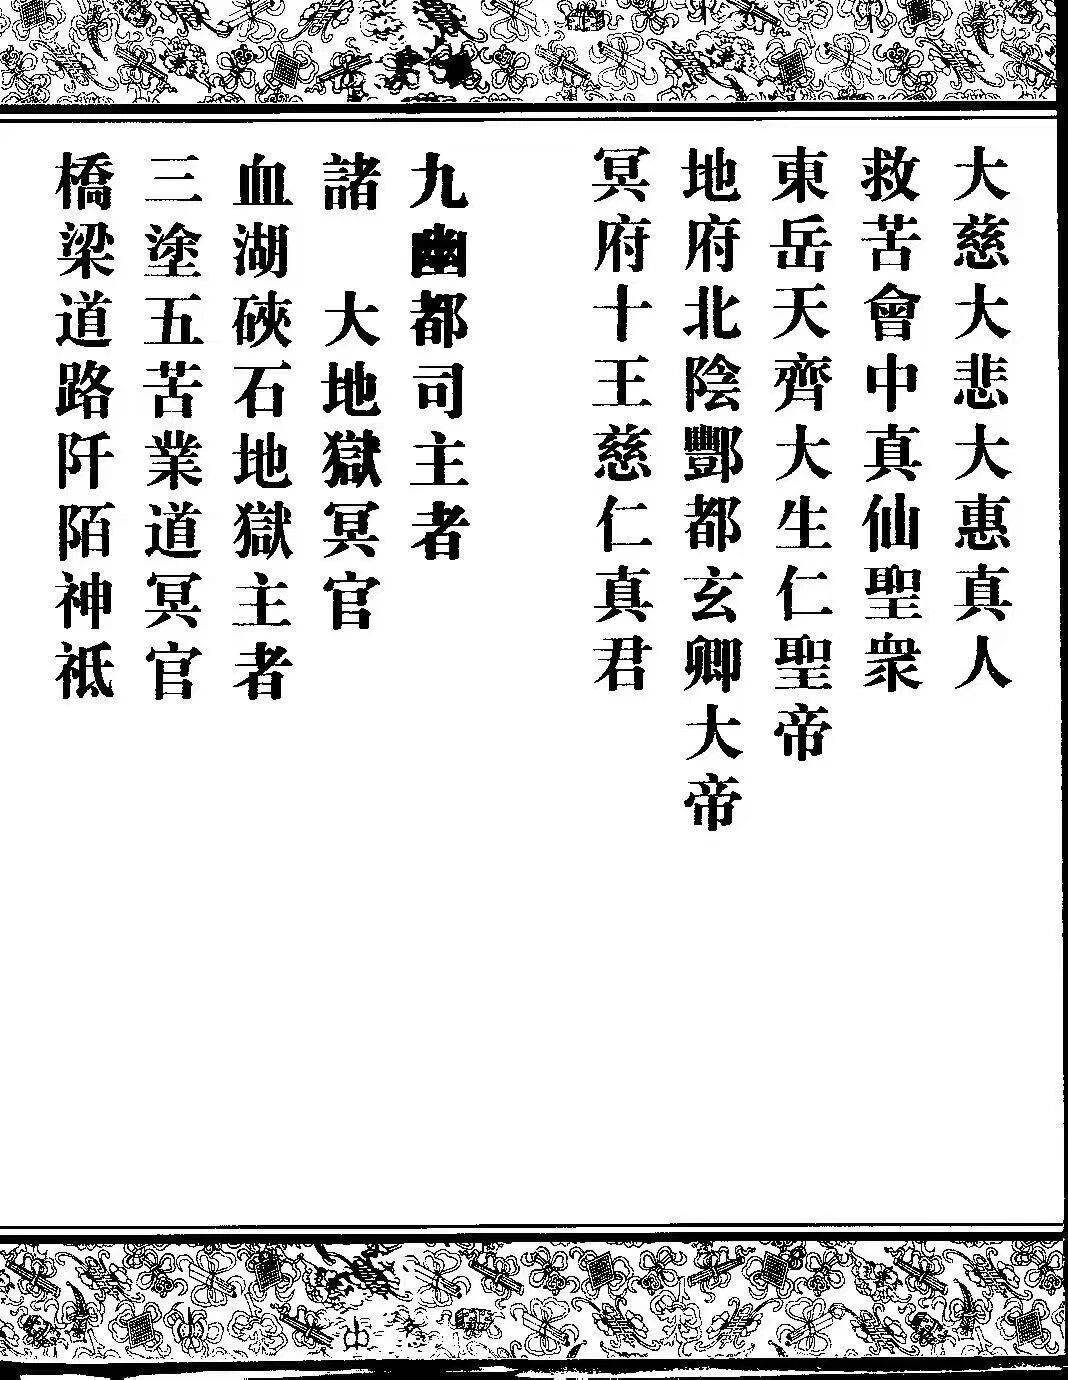 大慈大悲大惠真人
救苦會中真仙聖衆
東岳天齊大生仁聖帝
地府北陰酆都玄卿大帝
冥府十王慈仁真君
九幽都司主者
諸　大地獄冥官
血湖硤石地獄主者
三塗五苦業道冥官
橋梁道路阡陌神祗